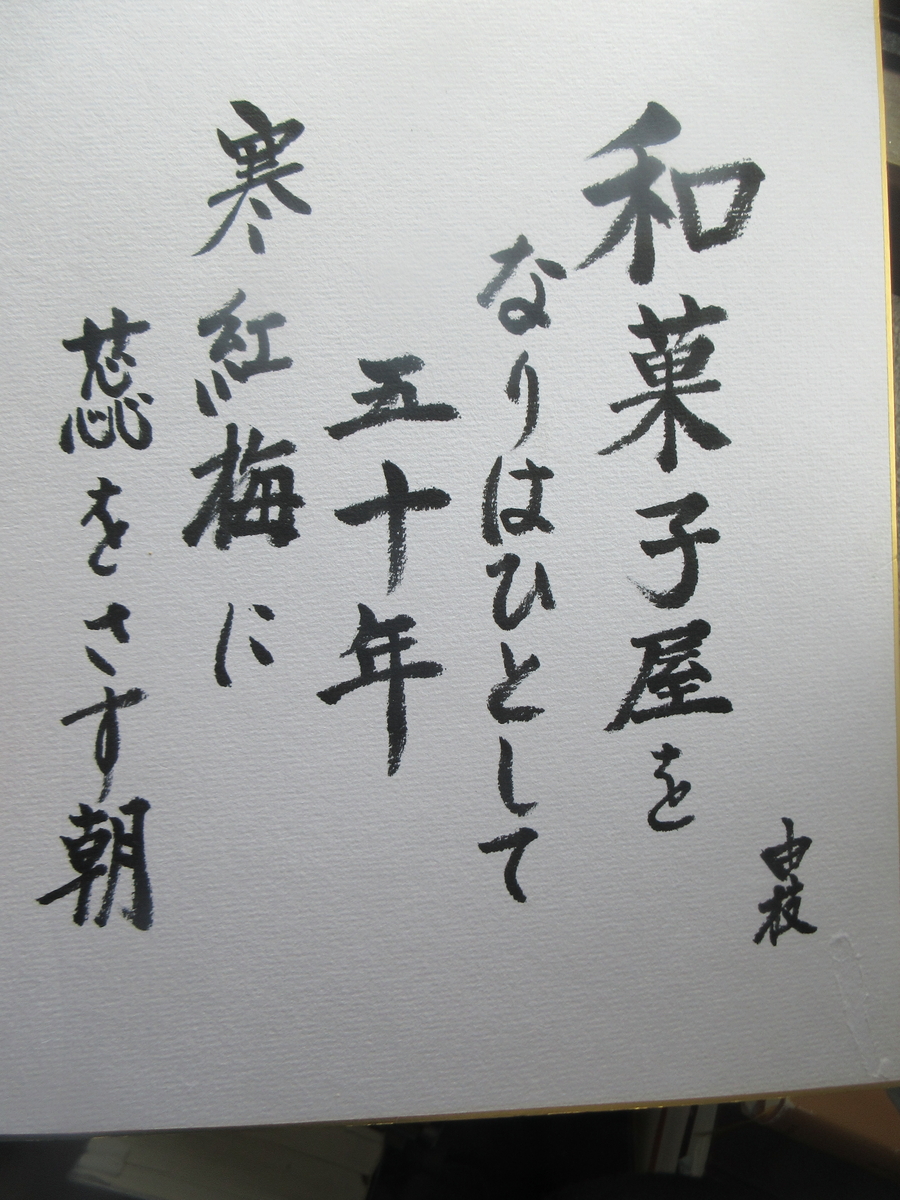 由枝
和菓子屋を
なりはひとして
五十年
寒紅梅に
蕊をさす朝